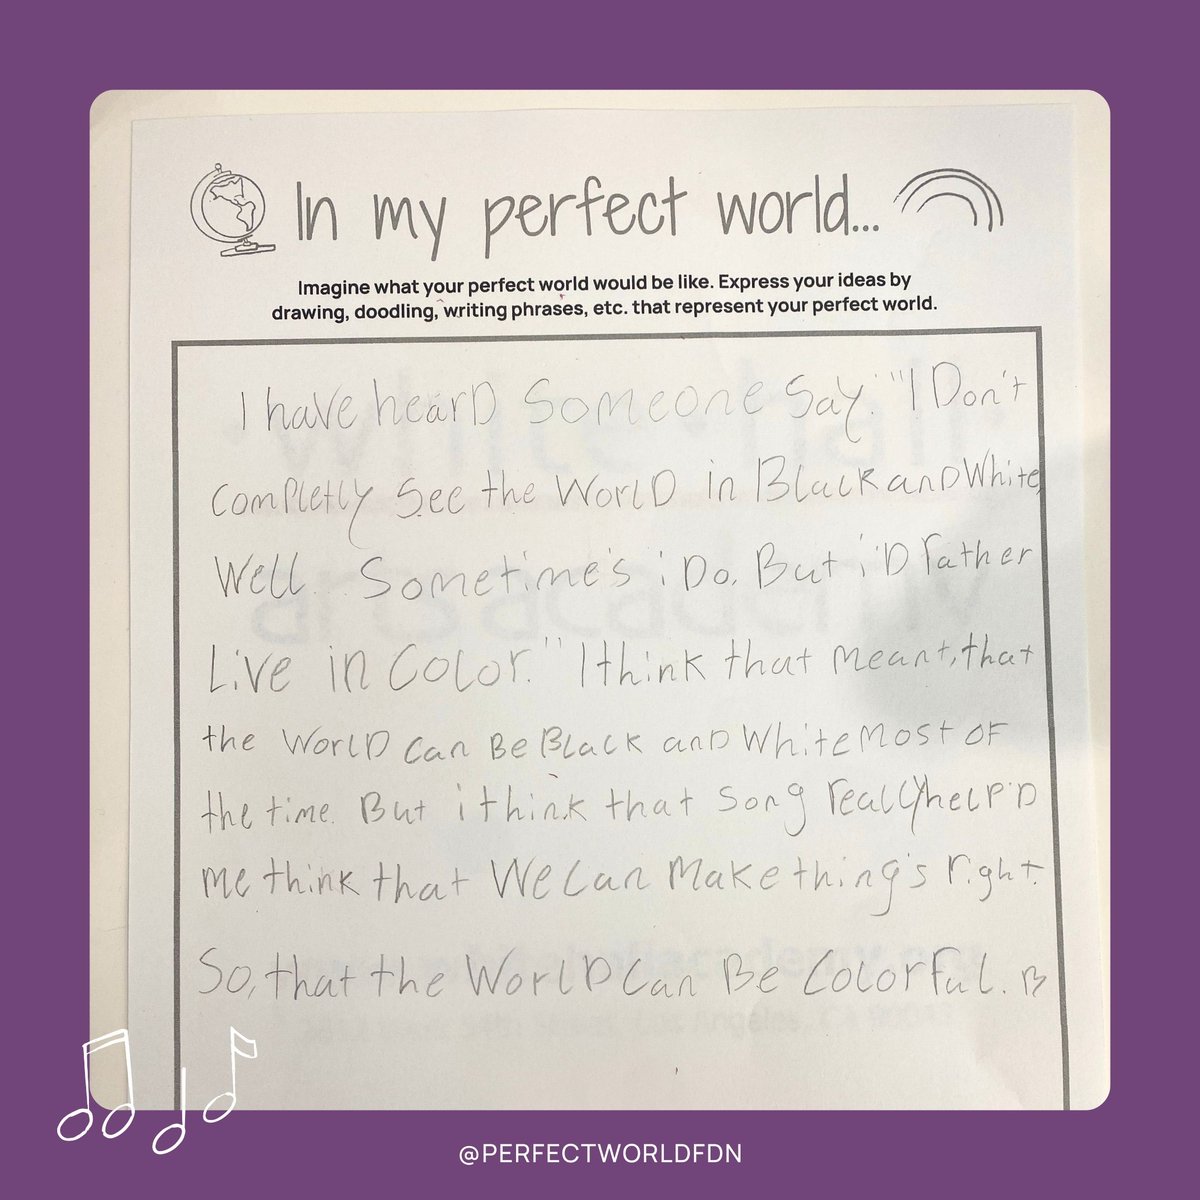 In my perfect world...
Imagine what your perfect world would be like. Express your ideas by
drawing, doodling, writing phrases, etc. that represent your perfect world.
I have hearD Someone Say. "I Don't
completly See the WorlD in Black anD White,
Well. Sometime's i Do. But i'D rather
Live in Color." I think that meant, that
the WorlD can Be Black anD White most oF
the time. But i think that Song really help'D
me think that We Can Make thing's right.
So, that the WorlD Can Be ColorFul. B
@PERFECTWORLDFDN